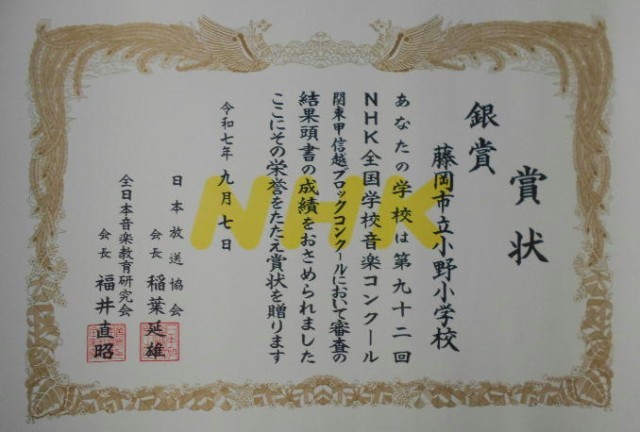 賞状
銀賞
藤岡市立小野小学校
あなたの学校は第九十二回
NHK全国学校音楽コンクール
関東甲信越ブロックコンクールにおいて審査の
結果頭書の成績をおさめられました
ここにその栄誉をたたえ賞状を贈ります
令和七年九月七日
日本放送協会
会長 稲葉延雄
全日本音楽教育研究会
会長 福井直昭
NHK